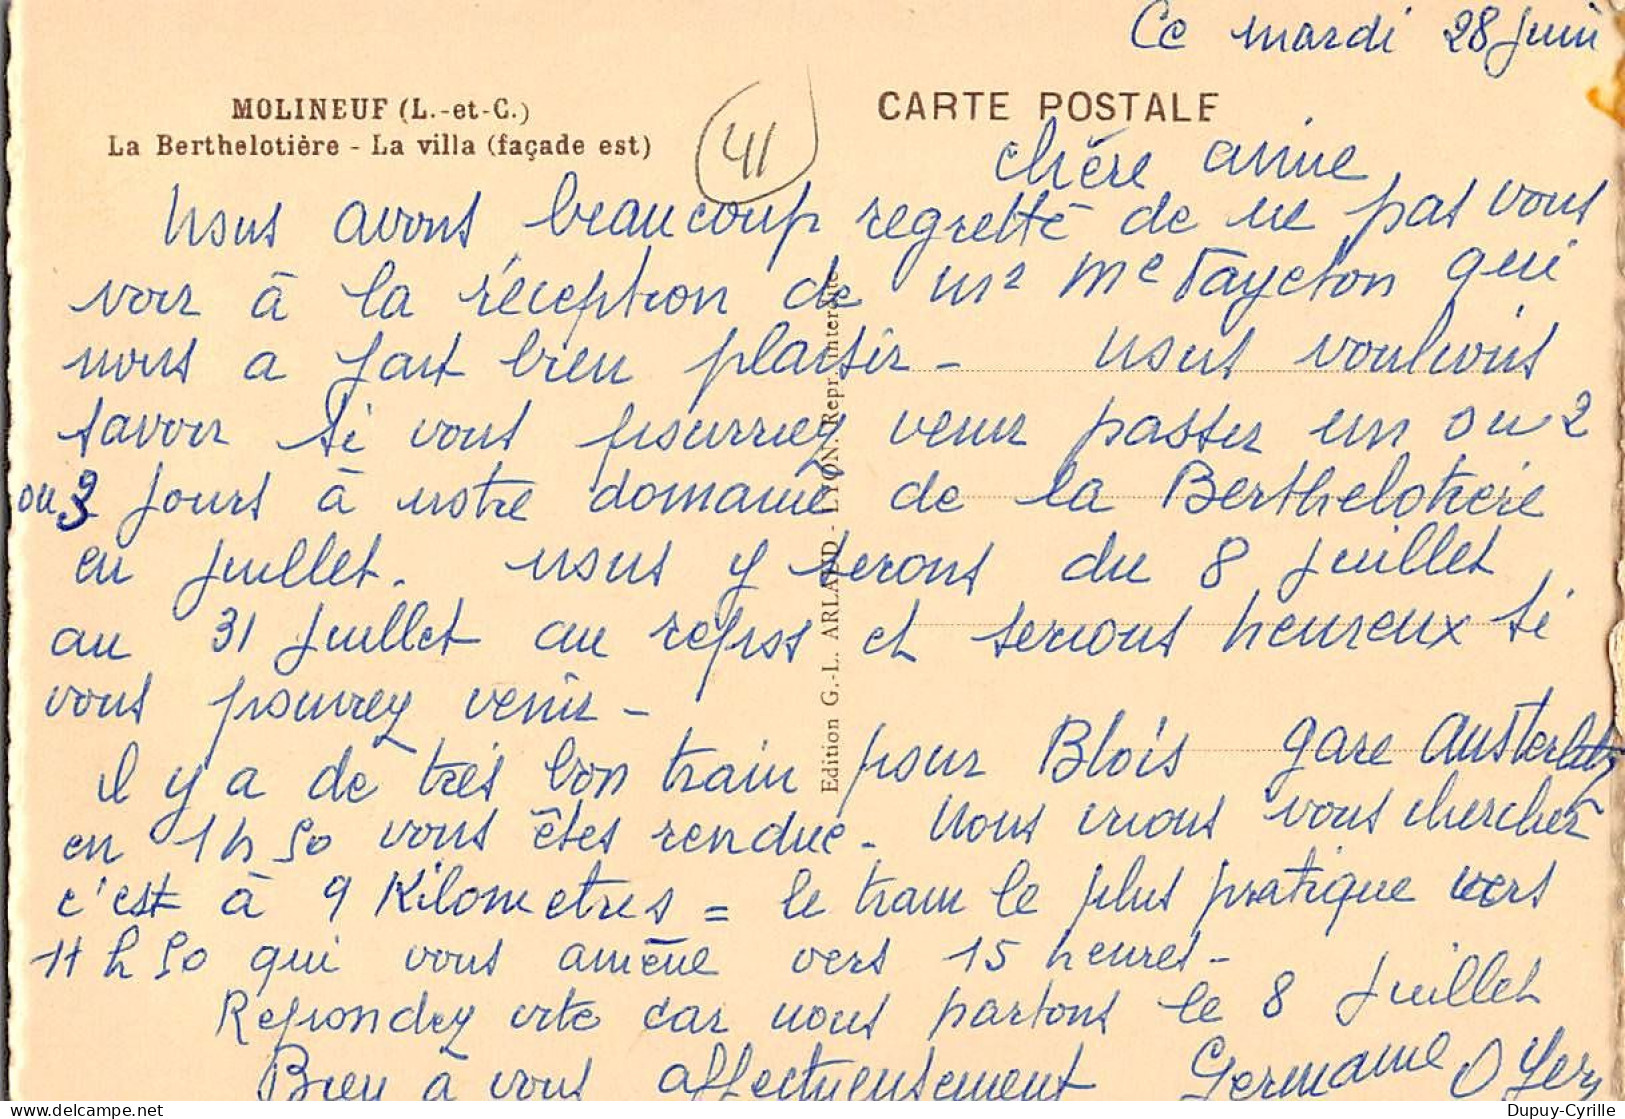 Ce mardi 28 juin
MOLINEUF (L.-et-C.)
La Berthelotière - La villa (façade est)
41
CARTE POSTALE
chère amie
Nous avons beaucoup regretté de ne pas vous
voir à la réception de Mr Mc Tayeton qui
nous a fait bien plaisir - nous voulions
savoir si vous pourriez venir passer un ou 2
ou 3 jours à notre domaine de la Berthelotière
en juillet. nous y serons du 8 juillet
au 31 juillet au repos et serions heureux si
vous pourrez venir -
il y a de très bon train pour Blois gare Austerlitz
en 1 h 50 vous êtes rendue - Nous irions vous chercher
c'est à 9 Kilomètres = le train le plus pratique vers
11 h 50 qui vous amène vers 15 heures -
Répondez vite car nous partons le 8 juillet
Bien à vous affectueusement Germaine
Edition G.-L. ARLAUD - LYON. Repr. interdite
delcampe.net
Dupuy-Cyrille